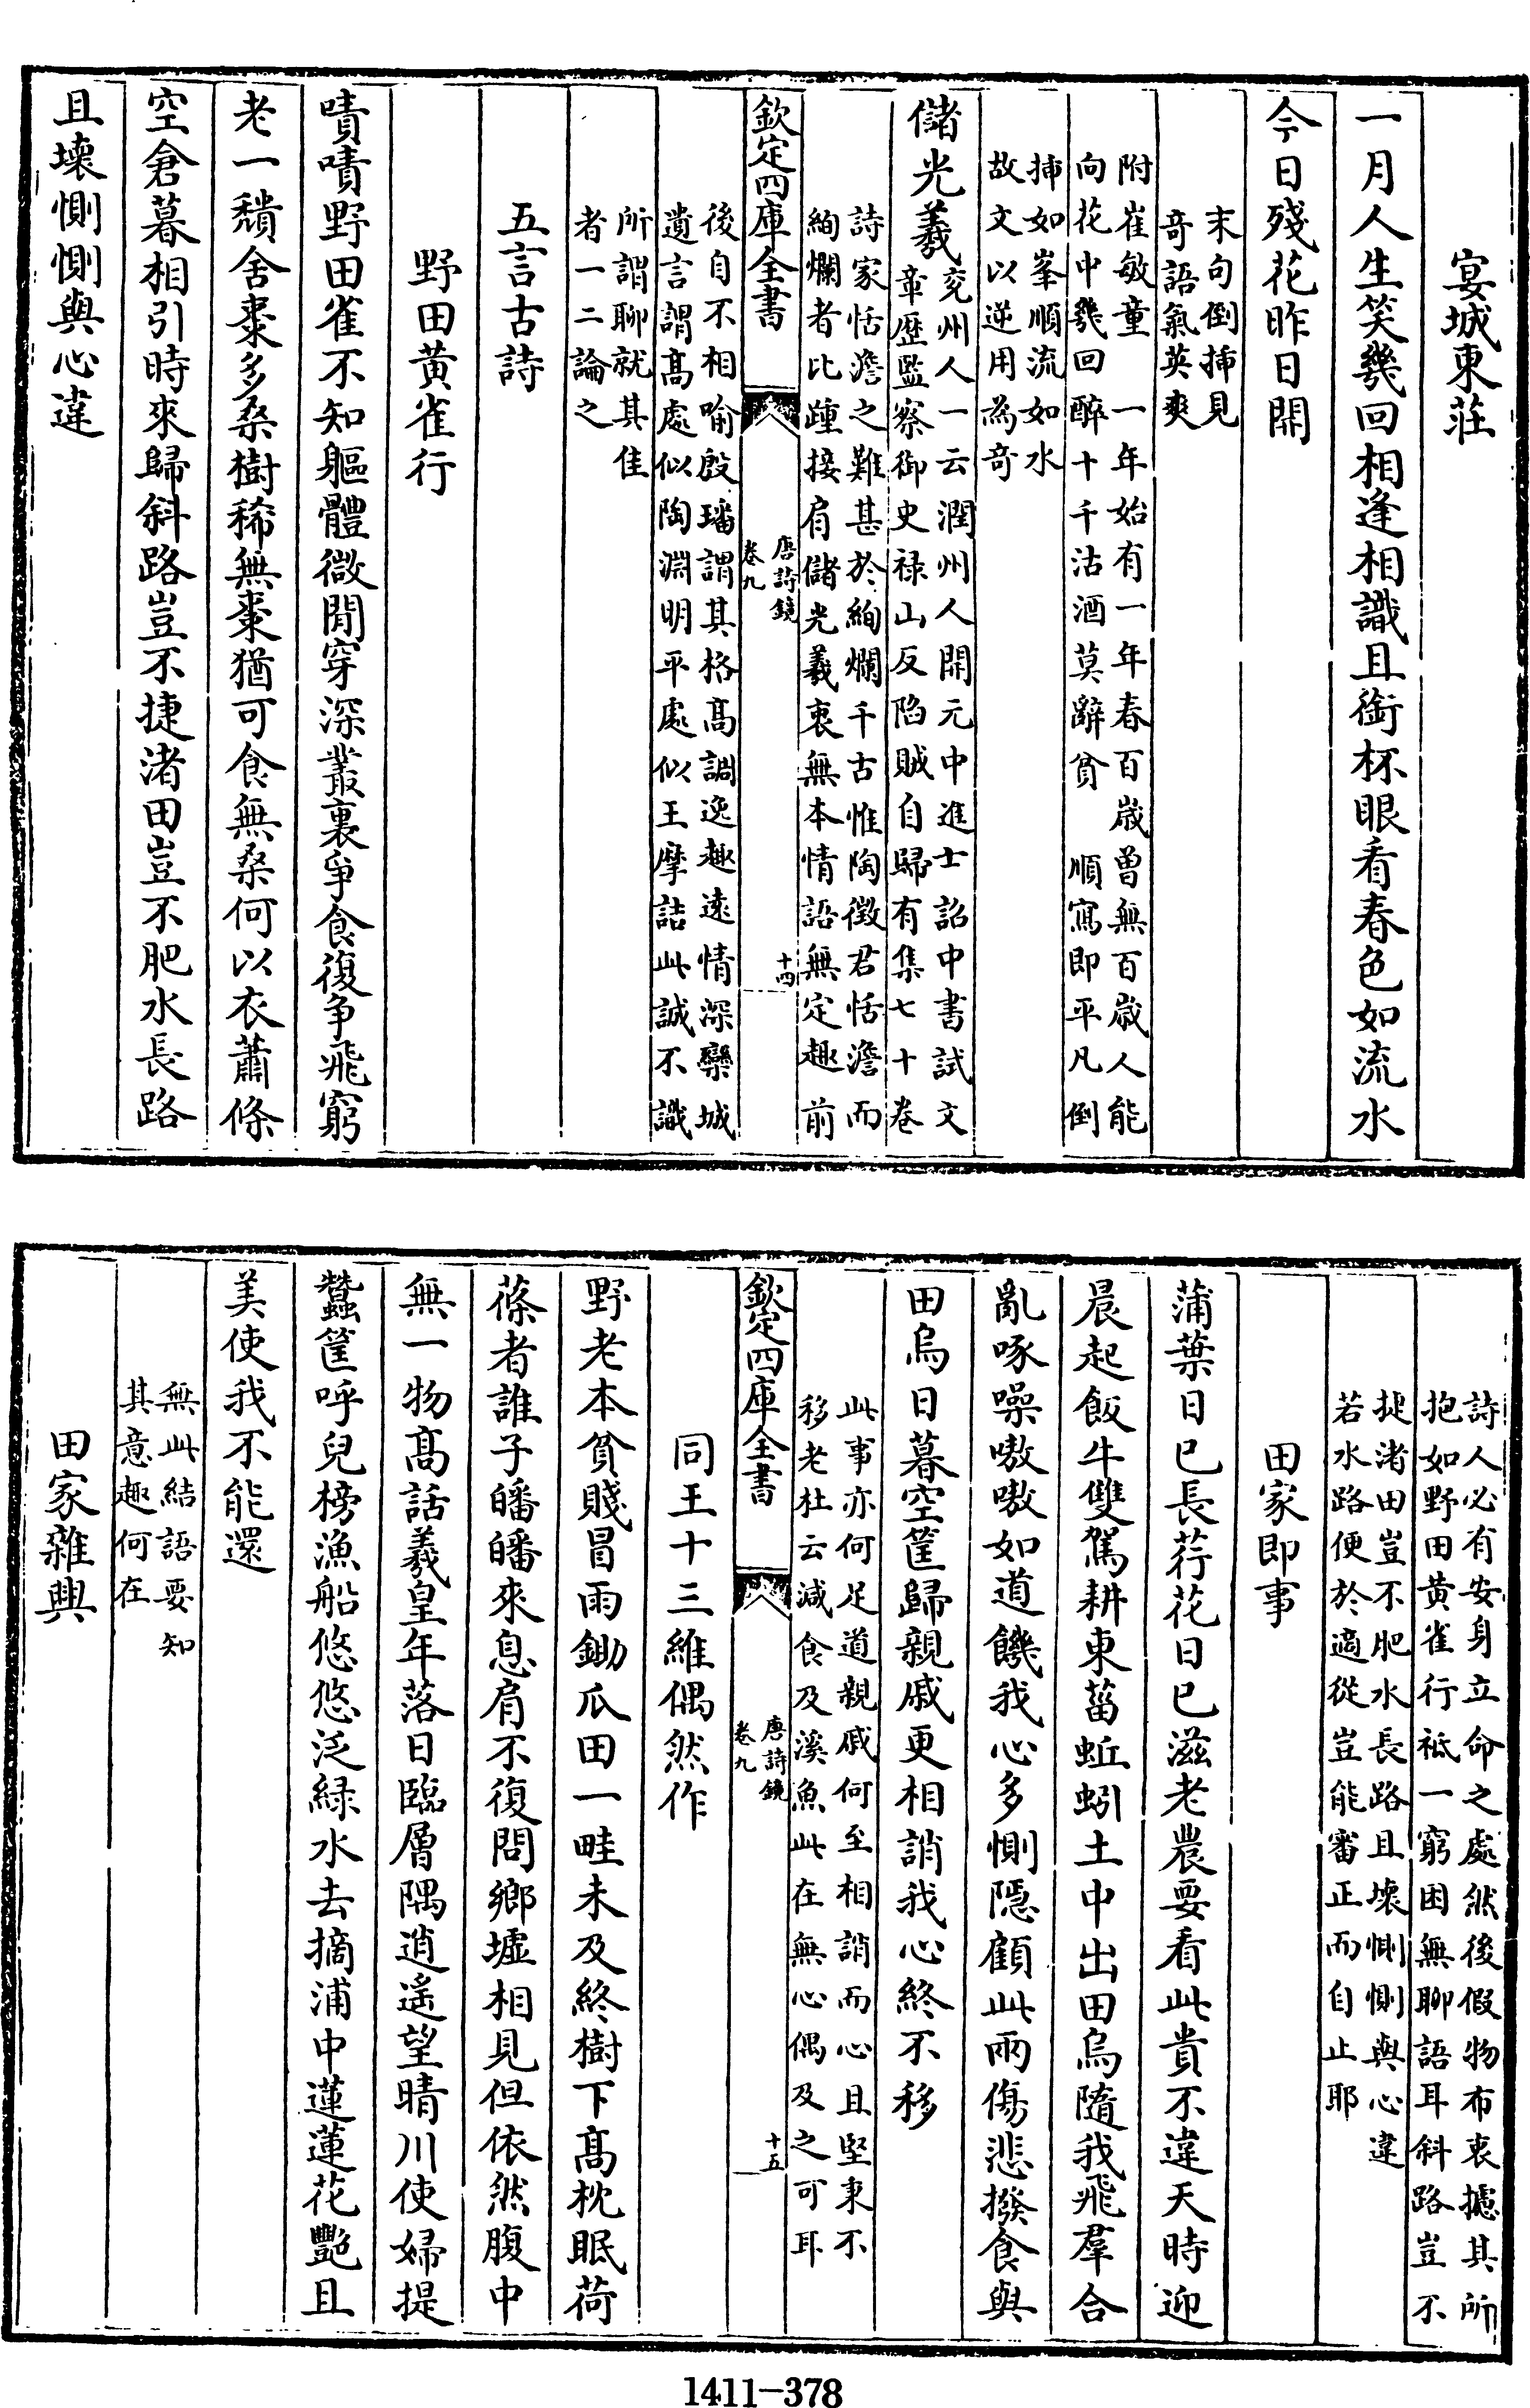 宴城東莊
一月人生笑幾回相逢相識且銜杯眼看春色如流水
今日殘花昨日開
末句倒揷見
奇語氣英爽
附崔敏童　一年始有一年春百歲曾無百歲人能
向花中幾回醉十千沽酒莫辭貧　順寫即平凡倒
揷如峯順流如水
故文以逆用為奇
儲光羲
兖州人一云潤州人開元中進士詔中書試文
章歷監察御史祿山反陷賊自歸有集七十卷
詩家恬澹之難甚於絢爛千古惟陶徵君恬澹而
絢爛者比踵接肩儲光羲衷無本情語無定趣前
欽定四庫全書
唐詩鏡
卷九
十四
後自不相喻殷璠謂其格高調逸趣遠情深欒城
遺言謂高處似陶淵明平處似王摩詰此誠不識
所謂聊就其佳
者一二論之
五言古詩
野田黃雀行
嘖嘖野田雀不知軀體微閒穿深叢裏爭食復爭飛窮
老一頹舍棗多桑樹稀無棗猶可食無桑何以衣蕭條
空倉暮相引時來歸斜路豈不捷渚田豈不肥水長路
且壞惻惻與心違
詩人必有安身立命之處然後假物布衷據其所
抱如野田黃雀行祗一窮困無聊語耳斜路豈不
捷渚田豈不肥水長路且壞惻惻與心違
若水路便於適從豈能審正而自止耶
田家即事
蒲葉日已長荇花日已滋老農要看此貴不違天時迎
晨起飯牛雙駕耕東菑蚯蚓土中出田烏隨我飛羣合
亂啄噪嗷嗷如道饑我心多惻隱顧此兩傷悲撥食與
田烏日暮空筐歸親戚更相誚我心終不移
此事亦何足道親戚何至相誚而心且堅秉不
移老杜云減食及溪魚此在無心偶及之可耳
欽定四庫全書
唐詩鏡
卷九
十五
同王十三維偶然作
野老本貧賤冒雨鋤瓜田一畦未及終樹下高枕眠荷
蓧者誰子皤皤來息肩不復問鄉墟相見但依然腹中
無一物高話羲皇年落日臨層隅逍遙望晴川使婦提
蠶筐呼兒榜漁船悠悠泛綠水去摘浦中蓮蓮花豔且
美使我不能還
無此結語要知
其意趣何在
田家雜興
1411-378